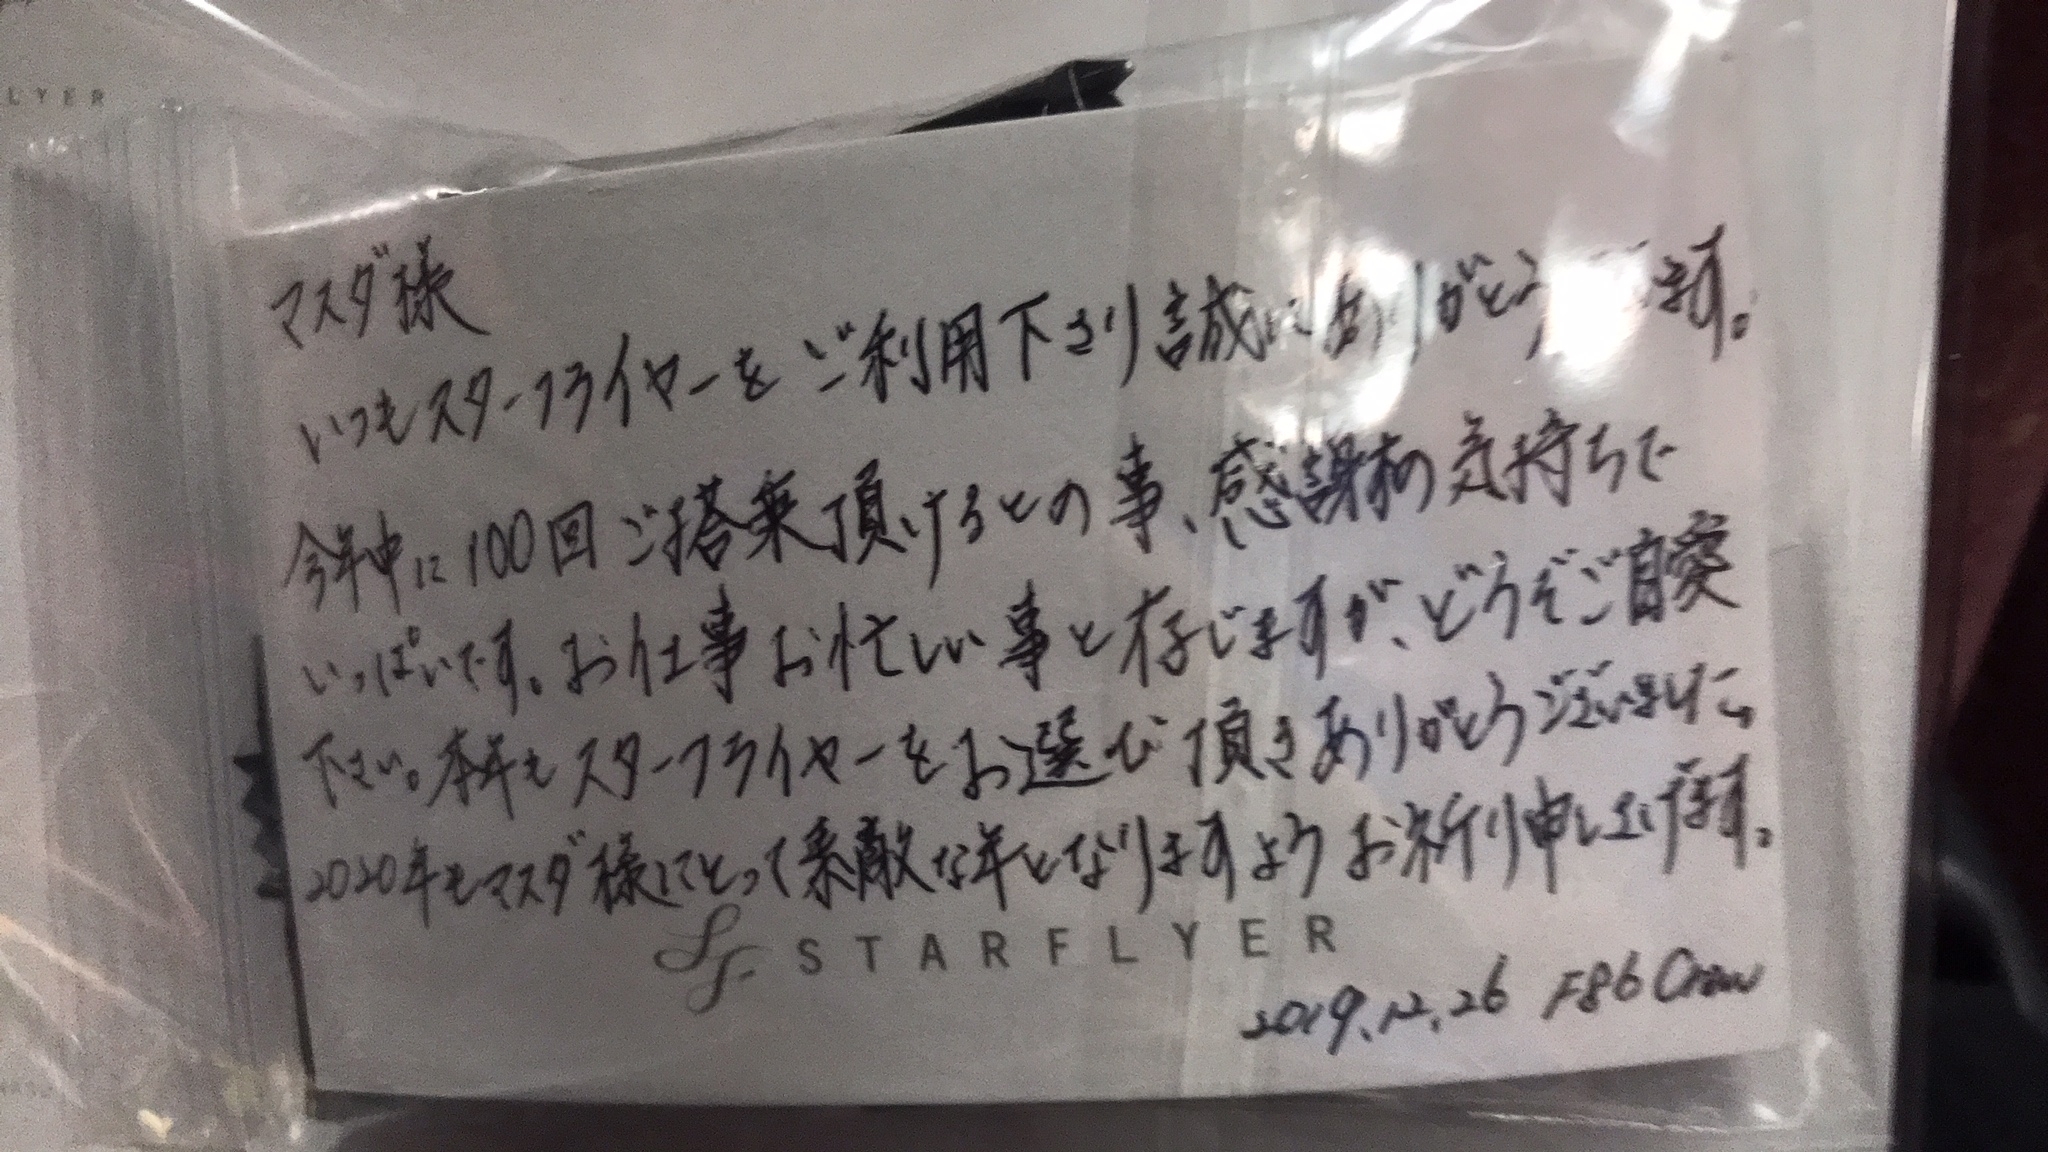 LYER
マスダ様
いつもスターフライヤーをご利用下さり誠にありがとうございます。
今年中に100回ご搭乗頂けるとの事、感謝の気持ちで
いっぱいです。お仕事お忙しい事と存じますが、どうぞご自愛
下さい。本年もスターフライヤーをお選び頂きありがとうございました。
2020年もマスダ様にとって素敵な年となりますようお祈り申し上げます。
STARFLYER
2019.12.26 F86 Crew